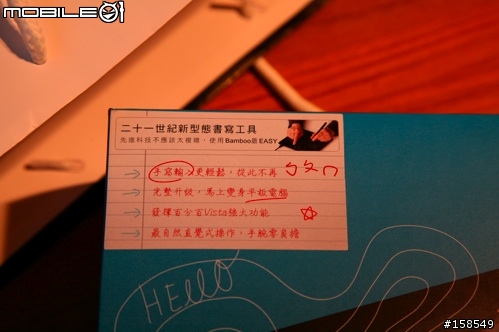 MOBILE01
二十一世紀新型態書寫工具
先進科技不應該太複雜，使用Bamboo最EASY
手寫輸入更輕鬆，從此不再ㄅㄆㄇ
完整升級，馬上變身平板電腦
發揮百分百Vista強大功能
最自然直覺式操作，手腕零負擔
HEllO
#158549